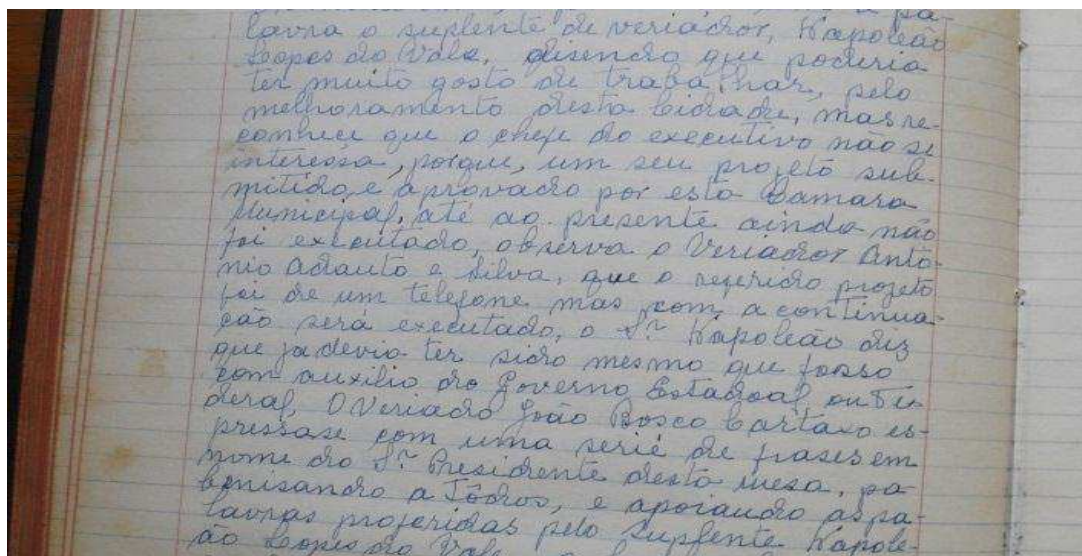 a pa-
lavra o suplente de veriador, Napoleão
Lopes do Vale, disendo que poderia
ter muito gosto de trabalhar, pelo
melhoramento desta cidade, mas re-
conhece que o chefe do executivo não se
interessa, porque, um seu projeto sub-
mitido, e aprovado por esta Camara
Municipal, até ao presente ainda não
foi executado, observa o Veriador Antô-
nio Adauto e Silva, que o referido projeto
foi de um telefone mas com a continua-
ção será executado, o Sr. Napoleão diz
que ja devia ter sido mesmo que fosse
com auxilio do Governo Estadoal ou Fe-
deral, O Veriado João Bosco Cartaxo es-
pressase com uma serié de frases em
nome do Sr. Presidente desta mesa, pa-
benisando a Tôdos, e apoiando as pa-
lavras proferidas pelo Suplente Napole-
ão Lopes do Vale